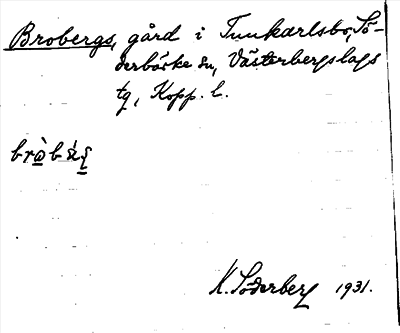 Brobergs, gård i Tunkarlsbo, Sö-
derbärke sn, Västerbergslags
tg, Kopp. l.
K. Söderberg 1931.